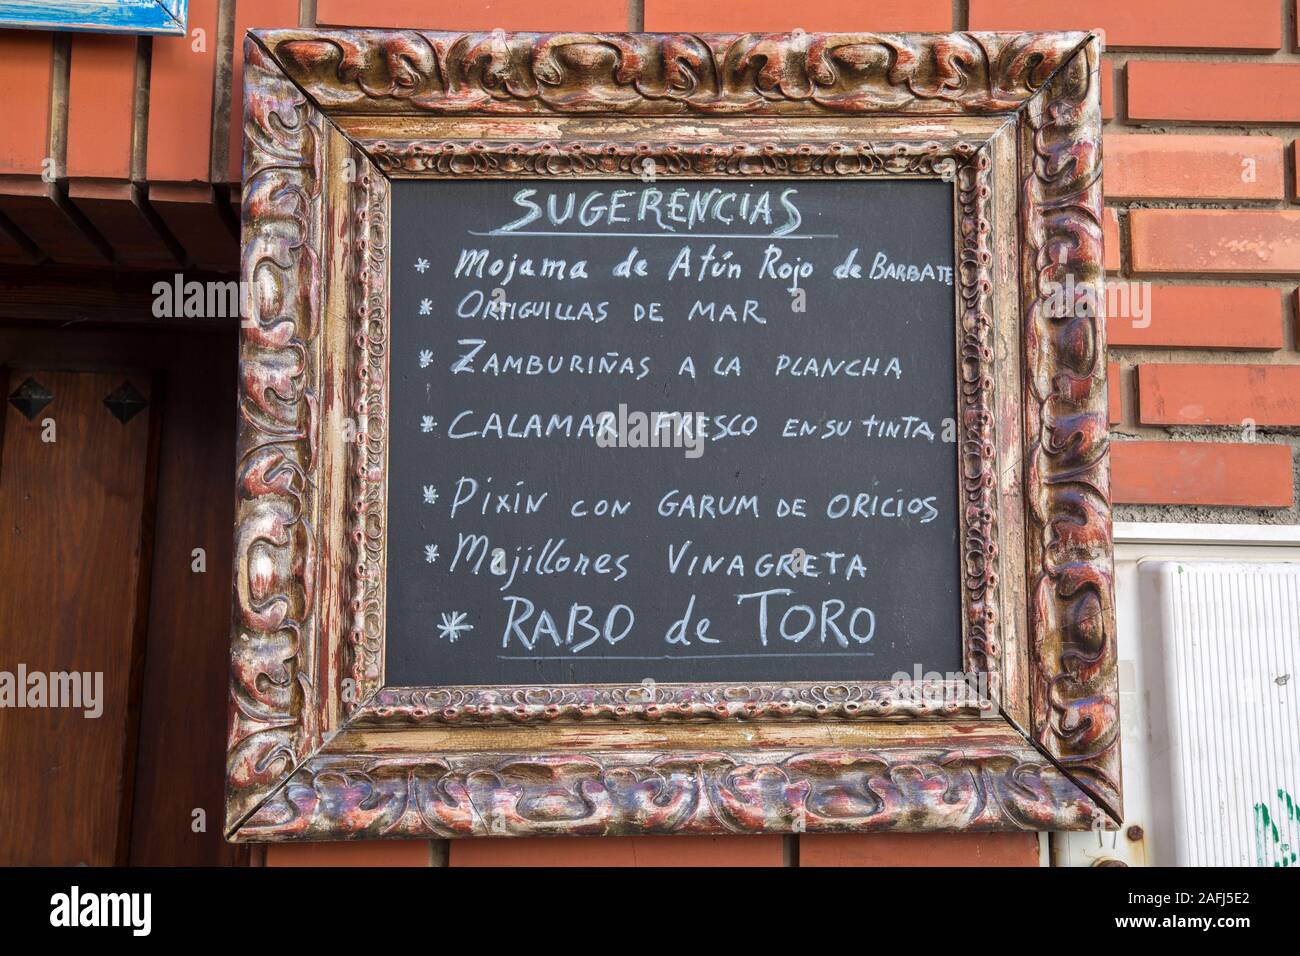 SUGERENCIAS
* Mojama de Atún Rojo de BARBATE
* ORTIGUILLAS DE MAR
* ZAMBURIÑAS A LA PLANCHA
* CALAMAR FRESCO EN SU TINTA
* PIXÍN CON GARUM DE ORICIOS
* Mejillones VINAGRETA
* RABO de TORO
alamy
Image ID: 2AFJ5E2
www.alamy.com